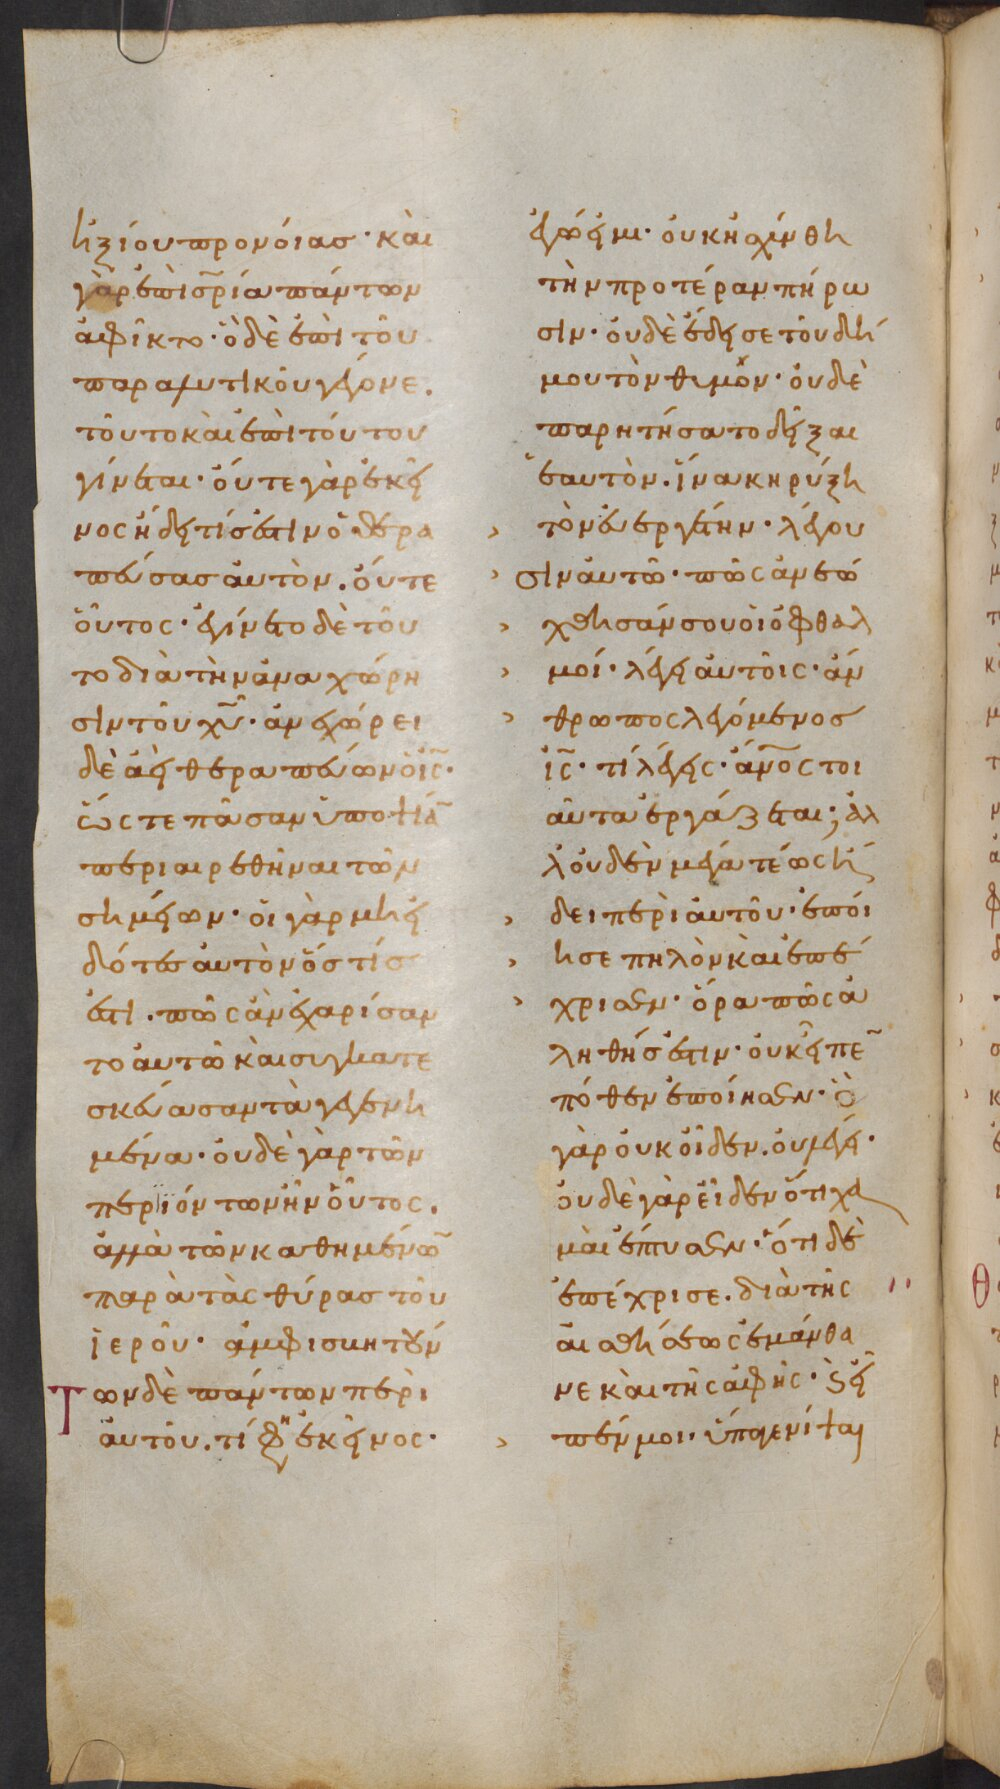 ἠξίου προνοίας· καὶ
γὰρ ἐπὶ σ̅ρ̅ία πάντων
ἀφῖκτο· ὃ δὲ ἐπὶ τοῦ
παραλυτικοῦ γέγονε.
τοῦτο καὶ ἐπὶ τούτου
γίνεται· οὔτε γὰρ ἐκεῖ
νος ἤδει τίς ἐστιν ὁ θερα
πεύσας αὐτὸν. οὔτε
οὗτος· ἐγίνετο δὲ τοῦ
το διὰ τὴν ἀναχώρη
σιν τοῦ χ̅υ̅· ἀνεχώρει
δὲ ἀεὶ θεραπεύων ὁ ι̅ς̅·
ὥστε πᾶσαν ὑποψίā
περιαιρεθῆναι τῶν
σημείων· οἱ γὰρ μὴ εἰ
δότες αὐτὸν ὅστίς
ἐστι. πῶς ἂν ἐχαρίσαν
το αὐτῶ καὶ συγκατε
σκεύασαν τὰ γεγενη
μένα· οὐδὲ γὰρ τῶν
περιϊόντων ἦν οὗτος.
ἀλλὰ τῶν καθημένω̄
παρὰ τὰς θύρας τοῦ
ἱεροῦ· ἀμφισβητούν
των δὲ πάντων περὶ
αὐτοῦ. τί φη ἐκεῖνος·
ἐγώ εἰμι· οὐκ ἠσχύνθη
τὴν προτέραν πήρω
σιν· οὐδὲ ἔδεισε τοῦ δή
μου τὸν θυμόν· οὐδὲ
παρητήσατο δεῖξαι
ἑαυτὸν. ἵνα κηρύξη
τὸν εὐεργέτην· λέγου
σιν αὐτῶ· πῶς ἀνεώ
χθησάν σου οἱ ὀφθαλ
μοί· λέγει αὐτοῖς· ἄν
θρωπος λεγόμενος
ι̅ς̅· τί λέγεις· ἄν̅ο̅ς τοι
αῦτα ἐργάζεται; ἀλ
λ' οὐδὲν μέγα τέως ἤ
δει περὶ αὐτοῦ· ἐποί
ησε πηλὸν καὶ ἐπέ
χρισεν· ὅρα πῶς ἀ
ληθής ἐστιν· οὐκ εἶπε̄
πόθεν ἐποίησεν· ὃ
γὰρ οὐκ οἶδεν. οὐ λέγει·
οὐδὲ γὰρ εἶδεν ὅτι χα
μαὶ ἔπτυσεν· ὅτι δὲ
ἐπέχρισε. διὰ τῆς
αἰσθήσεως ἐμάνθα
νε καὶ τῆς ἁφῆς· ϗ εἶ
πέν μοι· ὕπαγε νίψαι